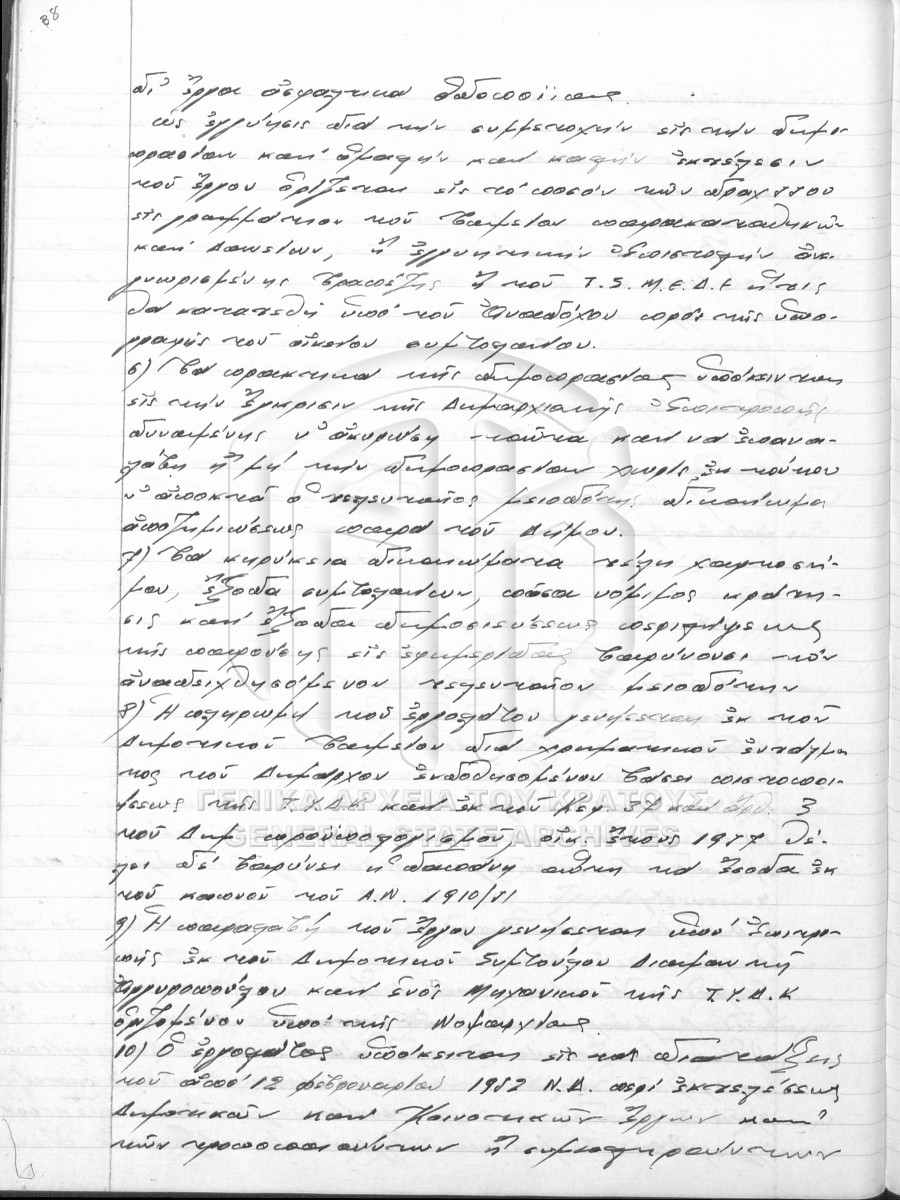 38
δι' ἔργα ἀσφαλτικά ὁδοποιΐας.
Ὡς ἐγγύησις διά τήν συμμετοχήν εἰς τήν δημο-
πρασίαν καί ὁμαλήν καί καλήν ἐκτέλεσιν
τοῦ ἔργου ὁρίζεται εἰς τό ποσόν τῶν δραχ
εἰς γραμμάτιον τοῦ Ταμείου παρακαταθηκῶν
καί Δανείων, ἤ ἐγγυητικήν ἐπιστολήν ἀνε-
γνωρισμένης Τραπέζης ἤ τοῦ Τ.Σ.Μ.Ε.Δ.Ε ἥτις
θά κατατεθῇ ὑπό τοῦ Ἀναδόχου πρό τῆς ὑπο-
γραφῆς τοῦ οἰκείου συμβολαίου.
6) Τά πρακτικά τῆς δημοπρασίας ὑπόκεινται
εἰς τήν ἔγκρισιν τῆς Δημαρχιακῆς Ἐπιτροπῆς
δυναμένης ν' ἀκυρώσῃ ταῦτα καί νά ἐπανα-
λάβῃ ἤ μή τήν δημοπρασίαν χωρίς ἐκ τούτου
ν' ἀποκτᾶ ὁ τελευταῖος μειοδότης δικαίωμα
ἀποζημιώσεως παρά τοῦ Δήμου.
7) Τά κηρύκεια δικαιώματα τέλη χαρτοσή-
μου, ἔξοδα συμβολαίων, πᾶσα νόμιμος κράτη-
σις καί ἔξοδα δημοσιεύσεως περιλήψεως
τῆς παρούσης εἰς ἐφημερίδας βαρύνουσι τόν
ἀναδειχθησόμενον τελευταῖον μειοδότην
8) Ἡ πληρωμή τοῦ ἐργολάβου γενήσεται ἐκ τοῦ
Δημοτικοῦ Ταμείου διά χρηματικοῦ ἐντάλμα
τος τοῦ Δημάρχου ἐκδοθησομένου βάσει πιστοποι-
ήσεως τῆς Τ.Υ.Δ.Κ καί ἐκ τοῦ Κεφ. καί ἄρθ. 3
τοῦ Δημ προϋπολογισμοῦ οἰκ. ἔτους 1977 θέ-
λει δέ βαρύνει ἡ δαπάνη αὕτη τά ἔσοδα ἐκ
τοῦ καπνοῦ τοῦ Α.Ν. 1910/51
9) Ἡ παραλαβή τοῦ ἔργου γενήσεται ὑπό ἐπιτρο-
πῆς ἐκ τοῦ Δημοτικοῦ Συμβούλου Διαμαντῆ
Ἀργυροπούλου καί ἑνός Μηχανικοῦ τῆς Τ.Υ.Δ.Κ
ὁριζομένου ὑπό τῆς Νομαρχίας.
10) Ὁ ἐργολάβος ὑπόκειται εἰς τάς διατάξεις
τοῦ ἀπό 12 Φεβρουαρίου 1952 Ν.Δ. περί ἐκτελέσεως
Δημοτικῶν καί Κοινοτικῶν Ἔργων καί
τῶν τροποποιούντων ἤ συμπληρούντων
ΓΕΝΙΚΑ ΑΡΧΕΙΑ ΤΟΥ ΚΡΑΤΟΥΣ
GENERAL STATE ARCHIVES